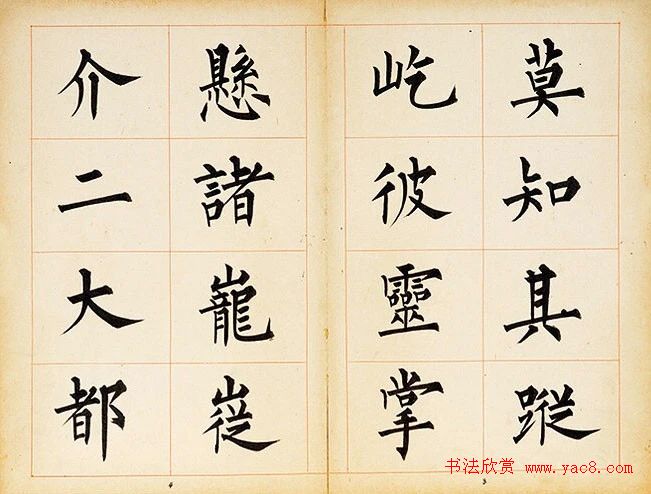 莫知其蹤
屹彼靈掌
3
懸諸巃嵸
介二大都
4
书法欣赏 www.yac8.com